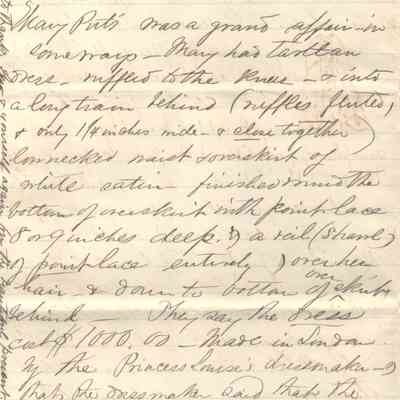 Mary Put's was a grand affair - in
some ways - Mary had tarltan
dress - ruffled to the knee - & into
a long train behind (ruffles fluted,
& only 1 1/4 inches wide - & close together)
low necked waist & overskirt of
white satin - finished round the
bottom of overskirt with point lace
8 or 9 inches deep. & a veil (shawl)
of point lace entirely) over her
hair & down to bottom of over skirt
behind - They say the dress
cost $1000.00 - Made in London
by the Princess Louise's dressmaker - &
that the dressmaker said that the